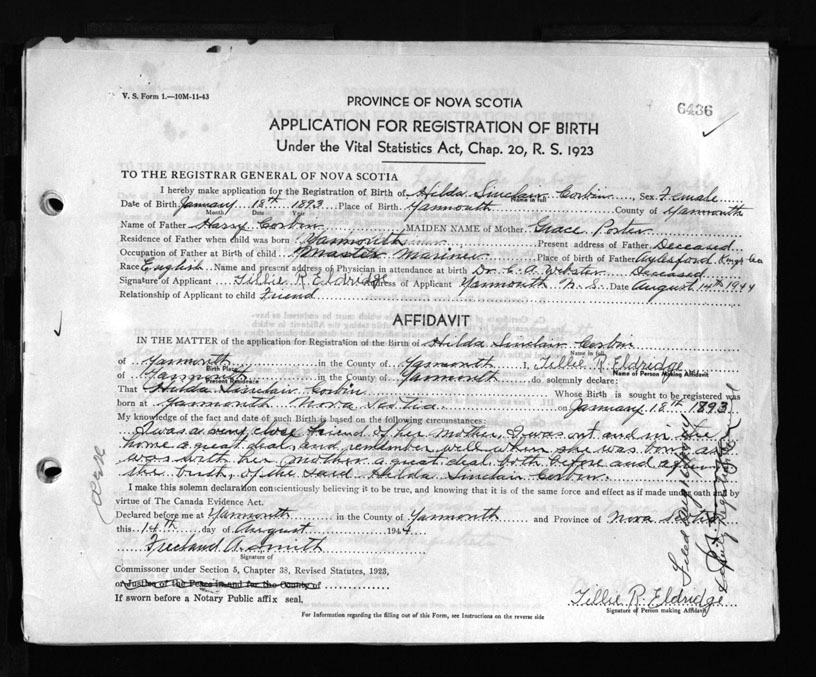 V. S. Form 1.—10M-11-43
6436
PROVINCE OF NOVA SCOTIA
APPLICATION FOR REGISTRATION OF BIRTH
Under the Vital Statistics Act, Chap. 20, R. S. 1923
TO THE REGISTRAR GENERAL OF NOVA SCOTIA
I hereby make application for the Registration of Birth of Hilda Sinclair Corbin Sex Female
Name in full
Date of Birth January 18th 1893 Place of Birth Yarmouth County of Yarmouth
Month Date Year
Name of Father Harry Corbin MAIDEN NAME of Mother Grace Porter
Residence of Father when child was born Yarmouth Present address of Father Deceased
Occupation of Father at Birth of child Master Mariner Place of birth of Father Aylesford Kings Co
Race English Name and present address of Physician in attendance at birth Dr. C. A. Webster Deceased
Signature of Applicant Tillie R Eldridge Address of Applicant Yarmouth N. S. Date August 14th 1944
Relationship of Applicant to child Friend
AFFIDAVIT
IN THE MATTER of the application for Registration of the Birth of Hilda Sinclair Corbin
Name in full
of Yarmouth in the County of Yarmouth I, Tillie R. Eldridge
Birth Place Name of Person Making Affidavit
of Yarmouth in the County of Yarmouth do solemnly declare:
Present Residence
That Hilda Sinclair Corbin Whose Birth is sought to be registered was
born at Yarmouth Nova Scotia on January 18th 1893
My knowledge of the fact and date of such Birth is based on the following circumstances:
I was a very close friend of her mother, I was out and in the
home a great deal, and remember well when she was born as I
was with her mother a great deal both before and after
the birth, of the said Hilda Sinclair Corbin.
I make this solemn declaration conscientiously believing it to be true, and knowing that it is of the same force and effect as if made under oath and by
virtue of The Canada Evidence Act.
Declared before me at Yarmouth in the County of Yarmouth and Province of Nova Scotia
this 14th day of August 1944
Freeland A. Smith
Signature of
Commissioner under Section 5, Chapter 38, Revised Statutes, 1923,
or Justice of the Peace in and for the County of
If sworn before a Notary Public affix seal.
Tillie R. Eldridge
Signature of Person making Affidavit
For Information regarding the filling out of this Form, see Instructions on the reverse side